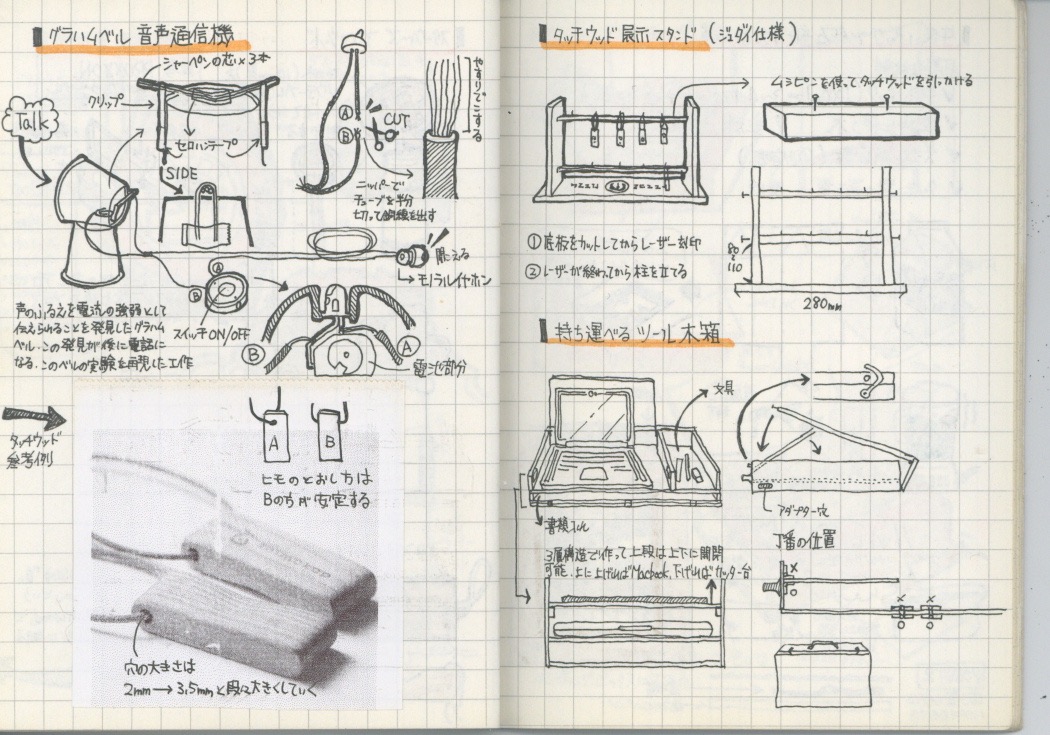 グラハムベル 音声通信機
シャーペンの芯×3本
クリップ
Talk
セロハンテープ
SIDE
A
B
CUT
やすりでこする
ニッパーで
チューブを半分
切って銅線を出す
聞こえる
モノラルイヤホン
A
B
スイッチON/OFF
B
A
電池部分
声のふるえを電流の強弱として
伝えられることを発見したグラハム
ベル。この発見が後に電話に
なる。このベルの実験を再現した工作
タッチウッド
参考例
A
B
ヒモのとおし方は
Bの方が安定する
穴の大きさは
2mm→3.5mmと段々大きくしていく
タッチウッド展示スタンド(ジェダイ仕様)
ムシピンを使ってタッチウッドを引っかける
①底板をカットしてからレーザー刻印
②レーザーが終わってから柱を立てる
80
110
280mm
持ち運べるツール木箱
文具
書類入れ
アダプター穴
3層構造で作って上段は上下に開閉
可能。上に上げればMacbook、下げればカッター台
丁番の位置